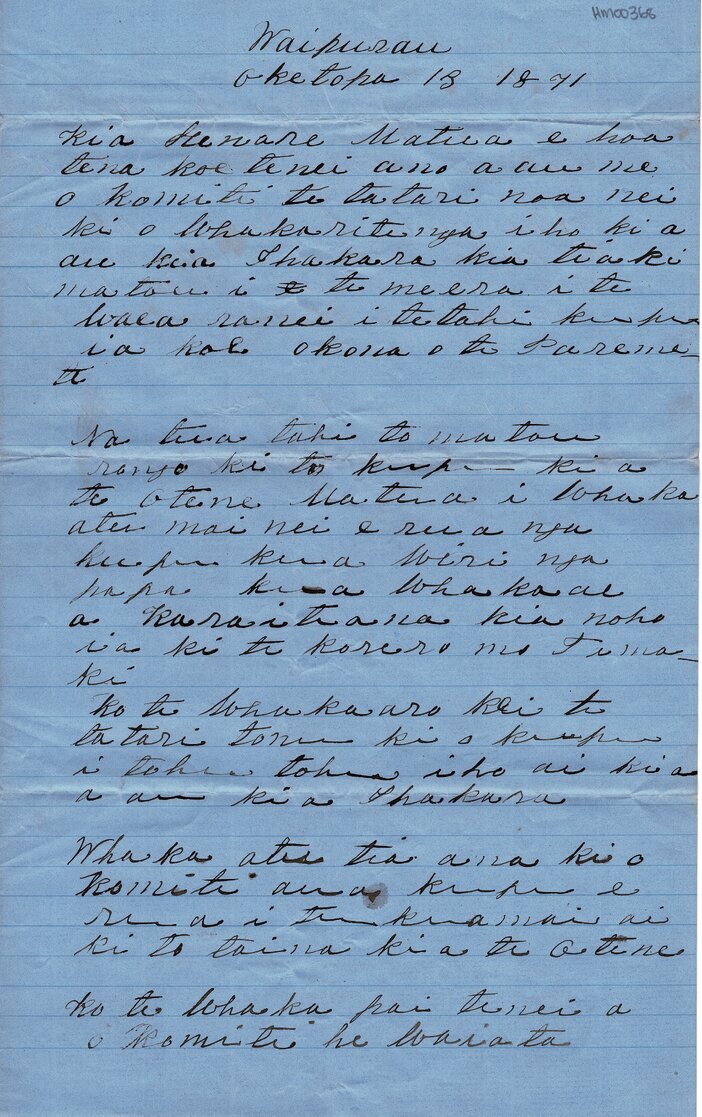 HM00368
Waipurau
Oketopa 13 1871
Kia Henare Matua e hoa
tena koe tenei ano a au me
o Komiti te tatari noa nei
ki o Whakaritenga iho ki a
au kia Ihakara kia tiaki
matou i te meera i te
Waea ranei i tetahi kupu
ia koe okona o te Pareme-
te
Na tua tahi to matou
rongo ki to kupu ki a
te Otene Matua i Whaka
atu mai nei e rua nga
kupu kua Wiri nga
papa kua Whakaae
a Karaitiana kia noho
ia ki te korero mo Tima-
ki
ko te Whakaaro kei te
tatari tonu ki o kupu
i tohu tohu iho ai kia
a au kia Ihakara
Whaka atu tia ana ki o
Komiti aua kupu e
rua i tukua mai ai
ki to taina kia te Otene
ko te Whaka pai tenei a
o Komiti he Waiata